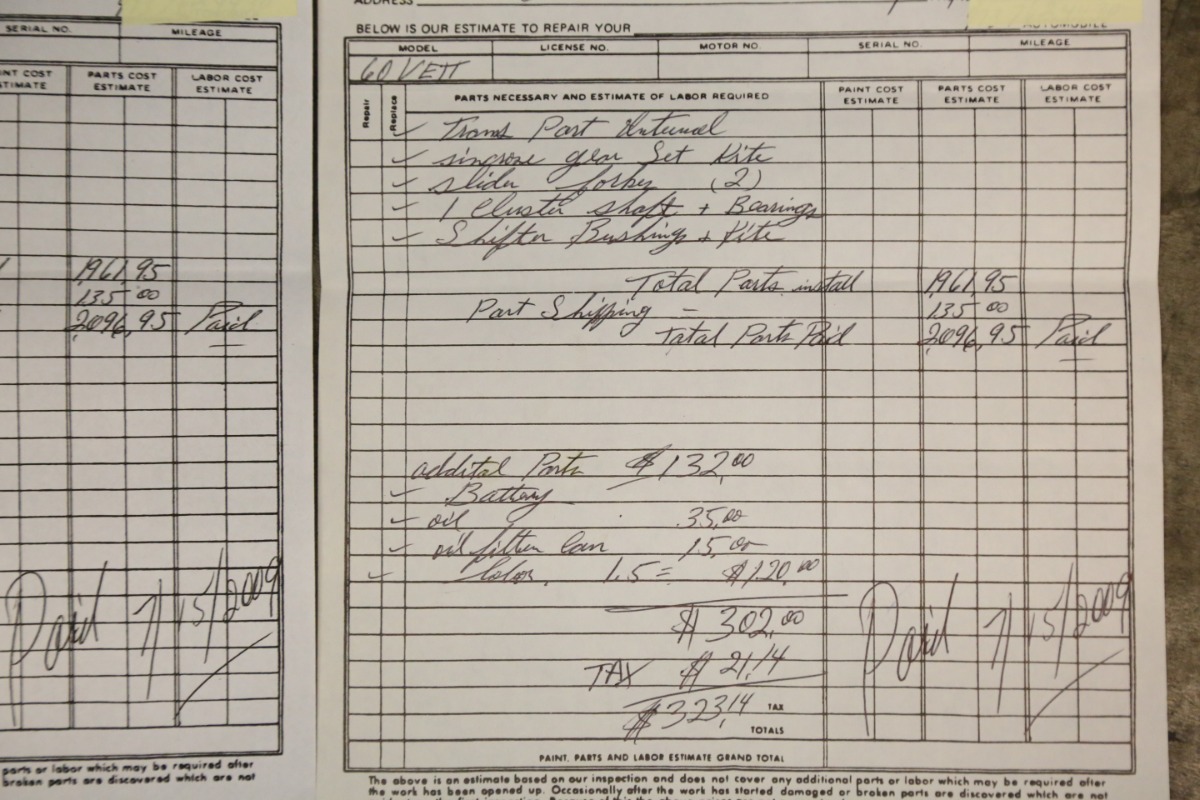 SERIAL NO. MILEAGE
INT COST ESTIMATE PARTS COST ESTIMATE LABOR COST ESTIMATE
1961,95
135 00
2096,95 Paid
Paid 7/15/2009
parts or labor which may be required after
broken parts are discovered which are not
ADDRESS
BELOW IS OUR ESTIMATE TO REPAIR YOUR AUTOMOBILE
MODEL LICENSE NO. MOTOR NO. SERIAL NO. MILEAGE
60 VETT
Repair Replace PARTS NECESSARY AND ESTIMATE OF LABOR REQUIRED PAINT COST ESTIMATE PARTS COST ESTIMATE LABOR COST ESTIMATE
✓ Trans Part Internal
✓ gear Set Kite
✓ slider forks (2)
✓ 1 Cluster shaft + Bearings
✓ Shifter Bushings + Kite
Total Parts install 1961,95
Part Shipping - 135 00
Total Parts Paid 2096,95 Paid
addital Parts $132,00
✓ Battery
✓ oil 35,00
✓ oil filter Can 15,00
✓ 1.5 = $120,00
$302,00
TAX $21,14
$323,14 TAX
TOTALS
Paid 7/15/2009
PAINT, PARTS AND LABOR ESTIMATE GRAND TOTAL
The above is an estimate based on our inspection and does not cover any additional parts or labor which may be required after
the work has been opened up. Occasionally after the work has started damaged or broken parts are discovered which are not